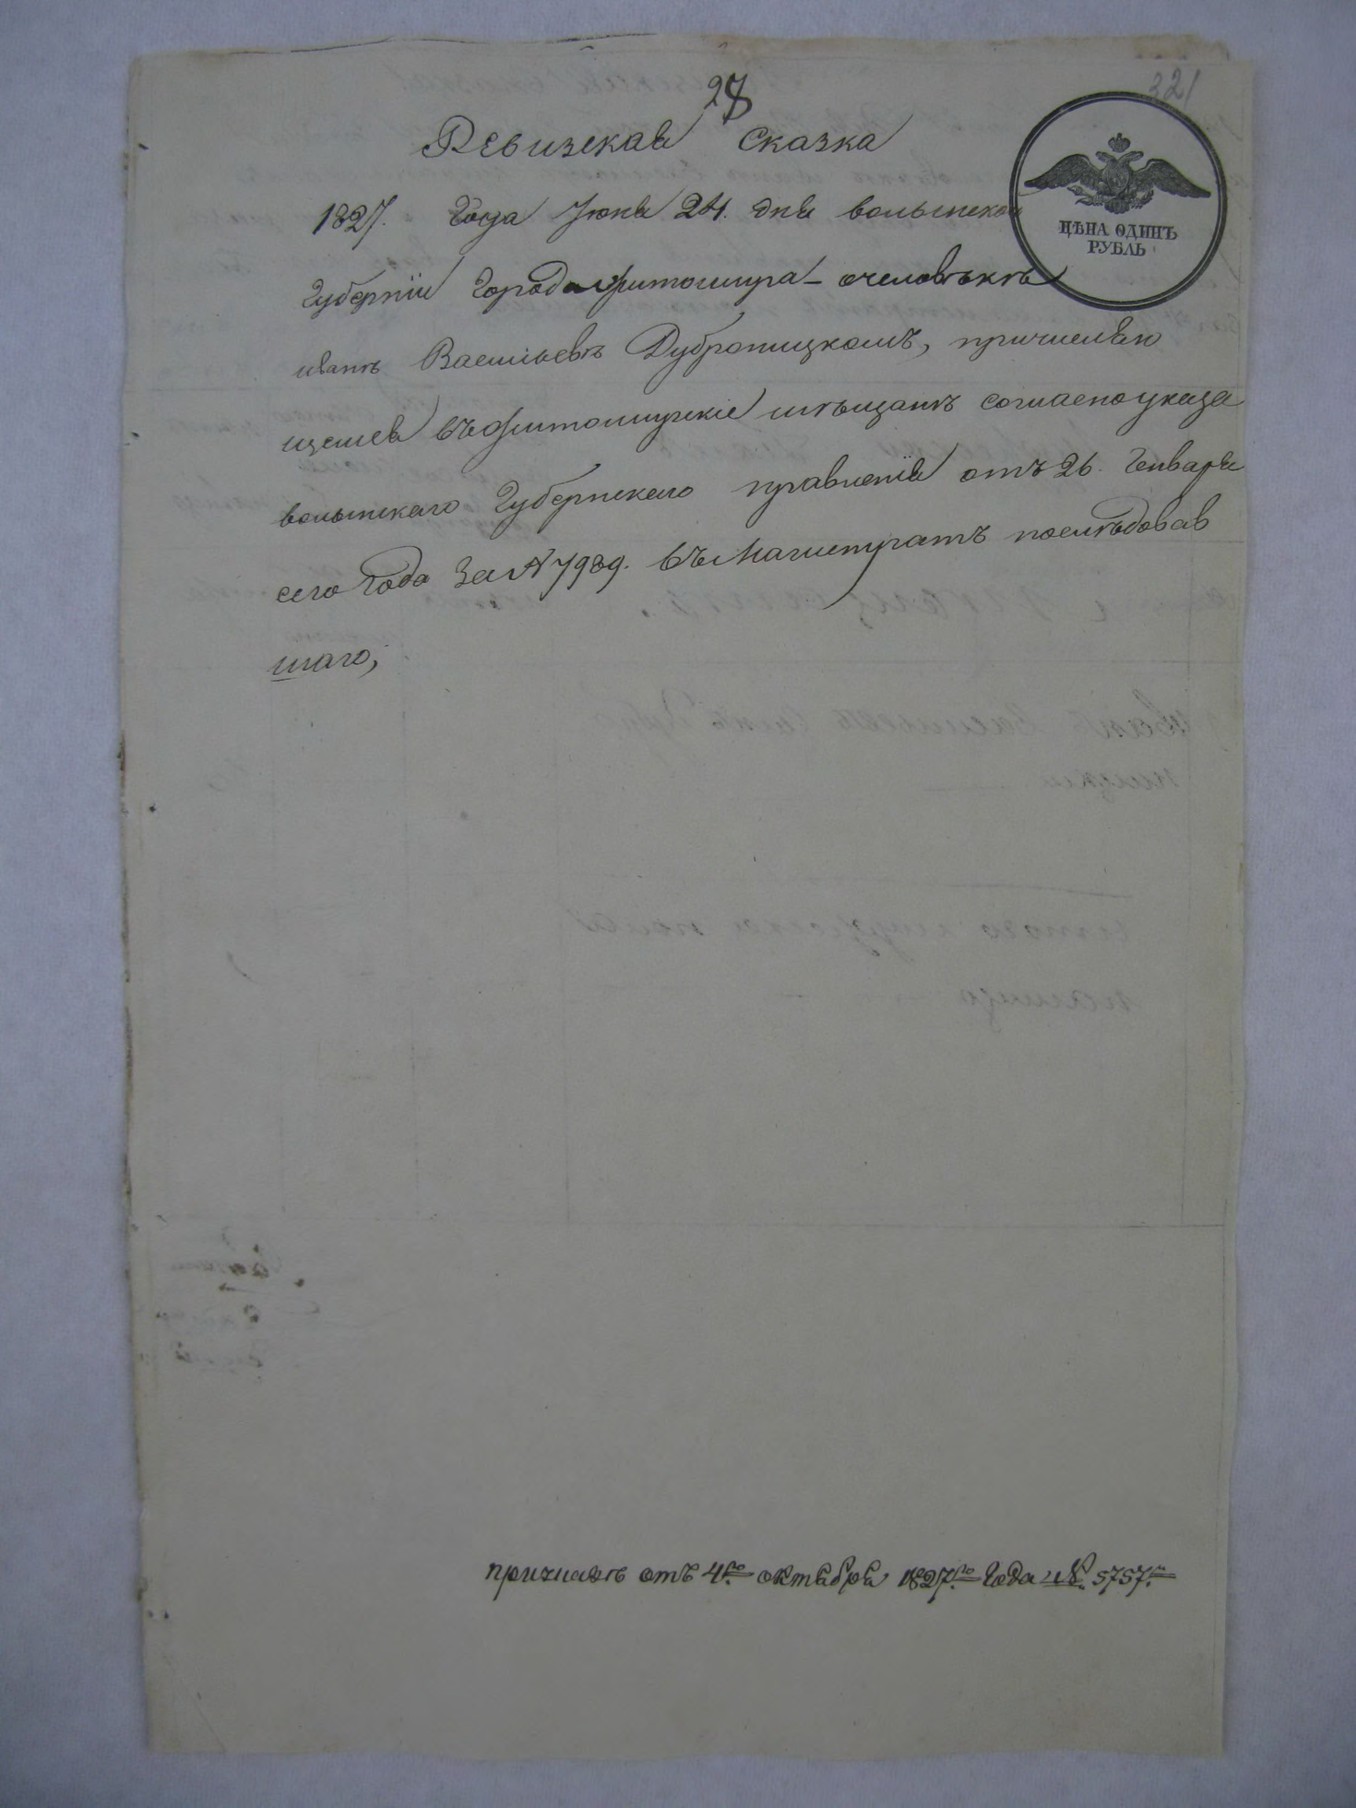 321
28
Ревизская Сказка
ЦѢНА ОДИНЪ
РУБЛЬ
1827. Года Июня 24. дня волынской
Губернїи Города житомира – очеловѣкѣ
иванѣ Васильевѣ Дубропицкомъ, причисляю
щемся въ житомирскіе мѣщанѣ согласно указа
волынскаго Губернскаго правленїя отъ 26. Генваря
сего Года За № 7989. въ Магистратъ послѣдовав
шаго,
причисленъ отъ 4го октября 1827го Года № 5757м